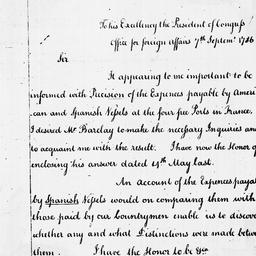 To his Excellency the President of Congress
Office for foreign Affairs 7th Septemr. 1786
Sir
It appeared to me important to be
informed with Precision of the Expences payable by Ameri
can and Spanish Vessels at the four free Ports in France.
I desired Mr Barclay to make the necessary Inquiries and
to acquaint me with the result. I have now the Honor of
enclosing his answer dated 14th May last.
An account of the Expences payab
by Spanish Vessels would on comparing them with
those paid by our Countrymen enable us to discov
whether any and what Distinctions were made betwe
them. I have the Honor to be &ca